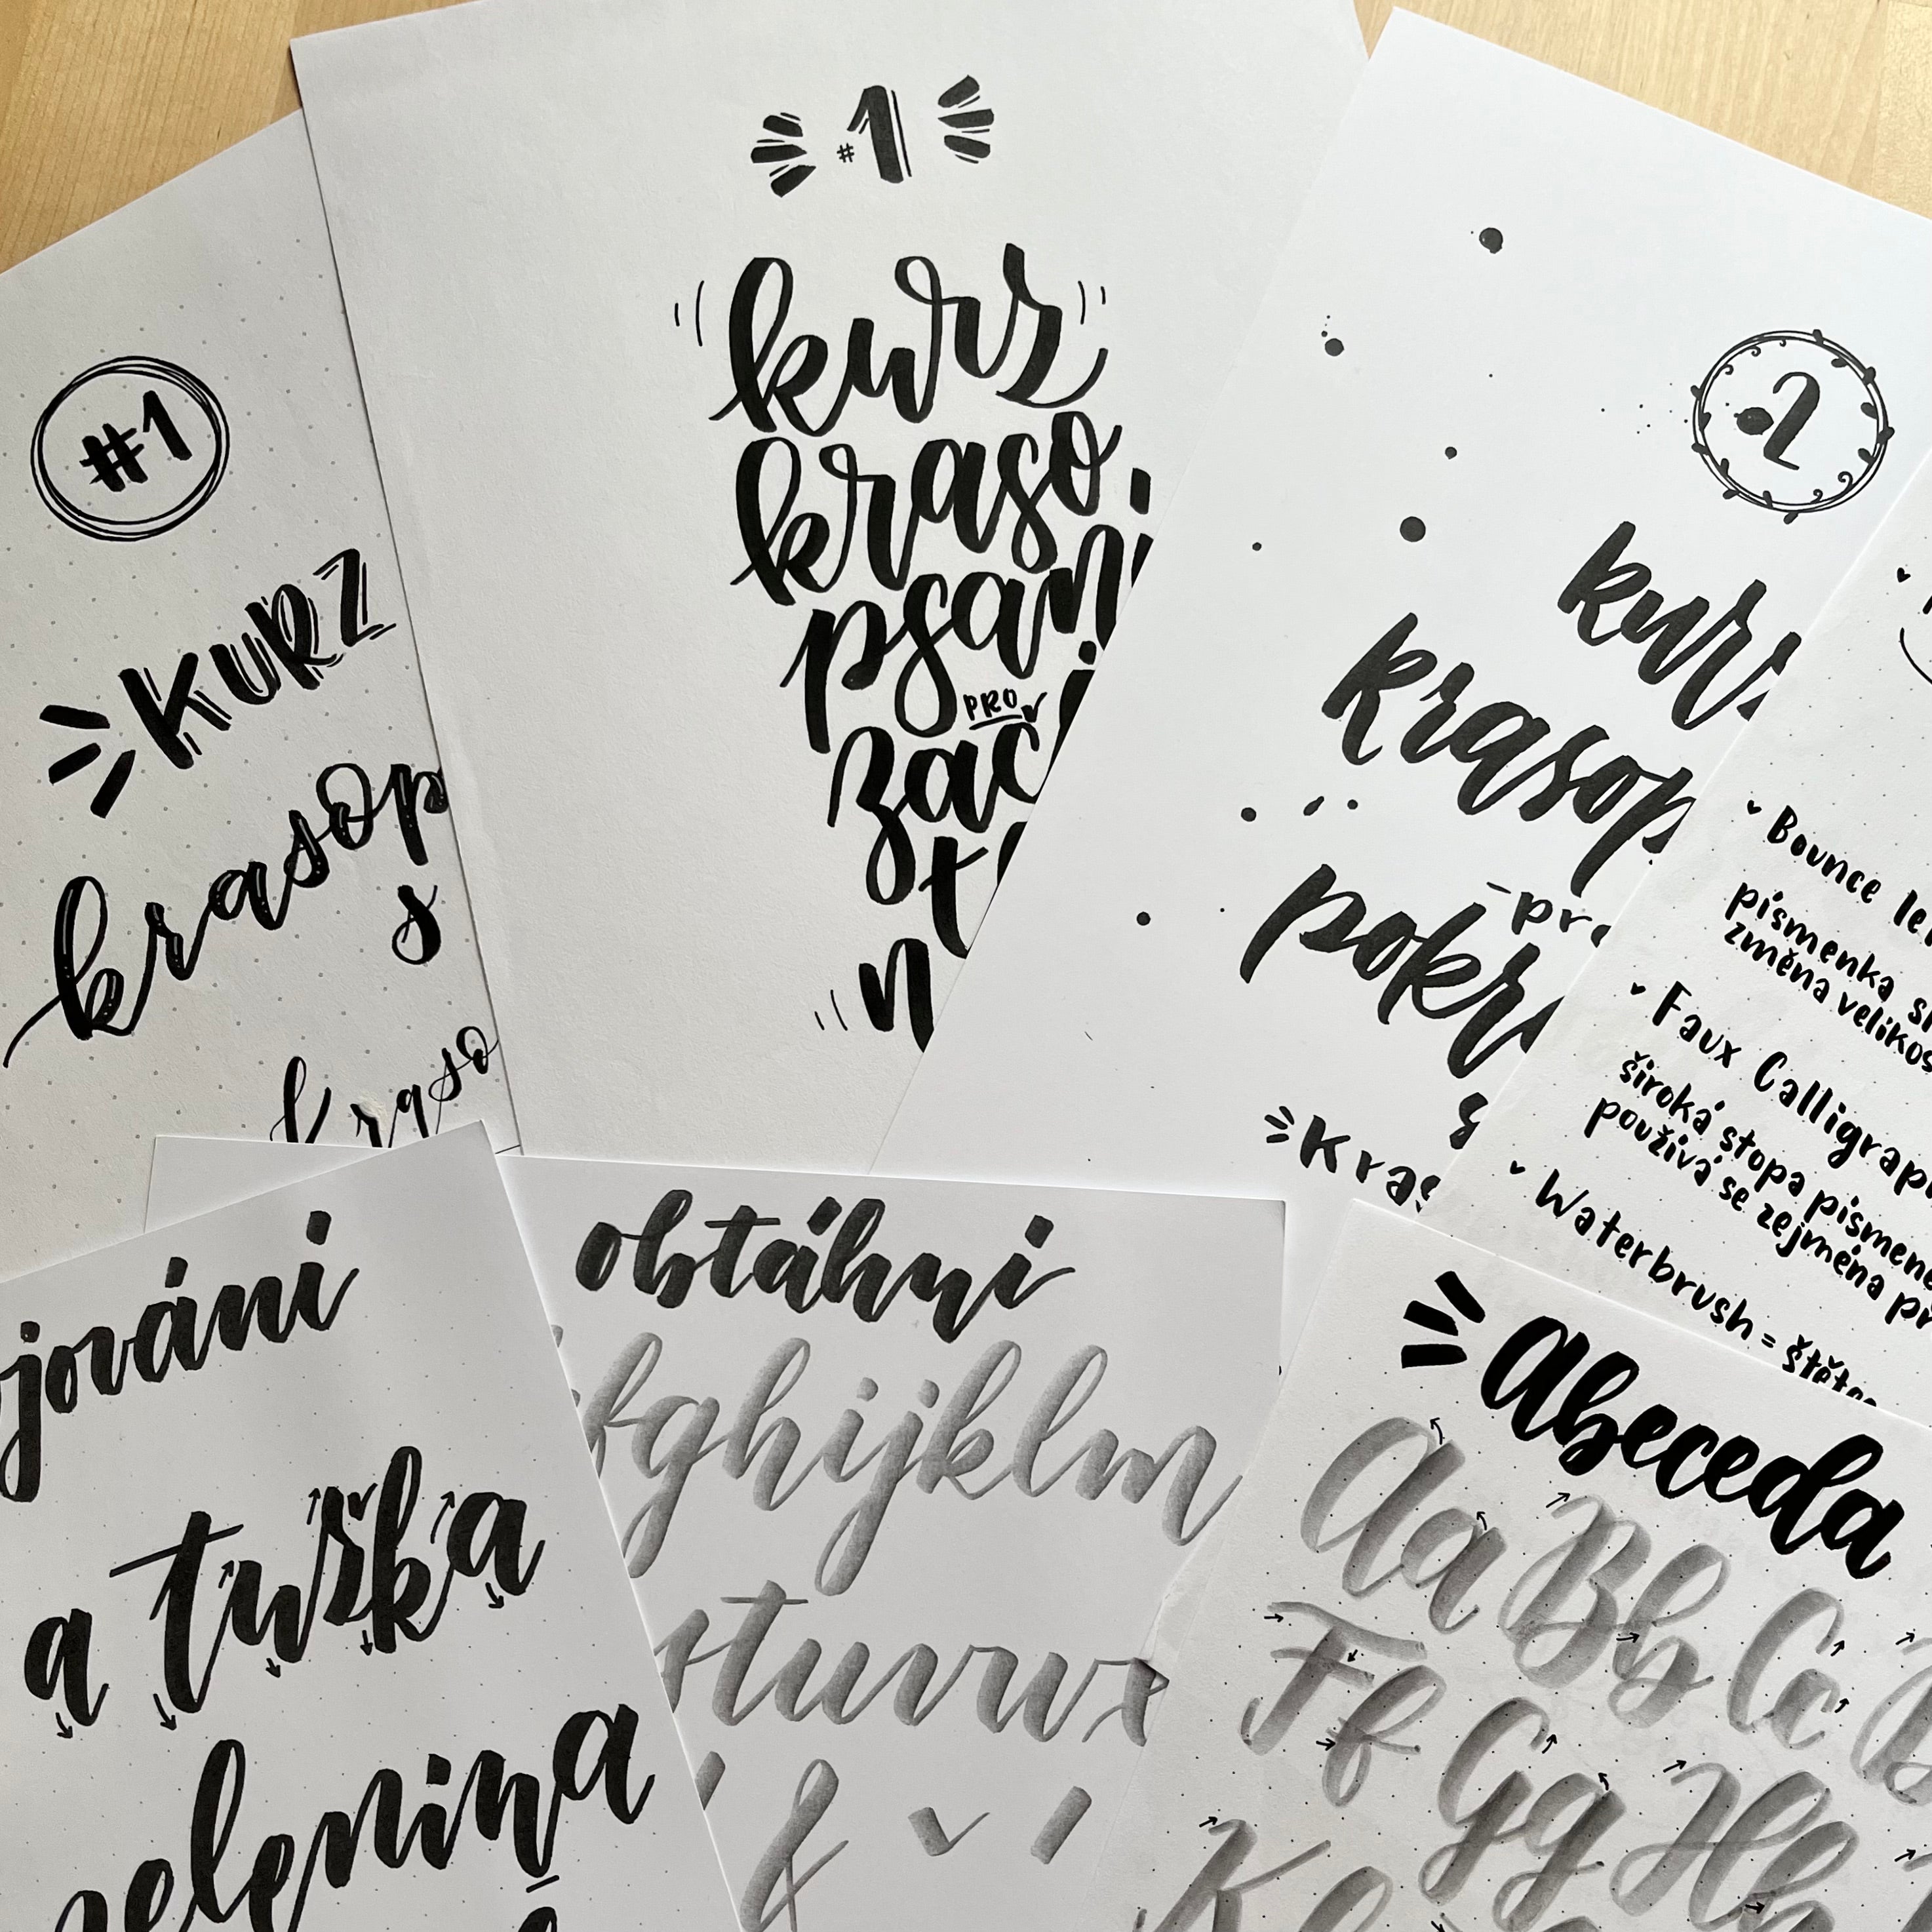 #1
KURZ
krasop
s
kraso
#1
kurz
kraso.
psaní
PRO
zač
n
2
kurz
krasop
pokr
s
Kras
Bounce le
písmenka
změna velikos
Faux Calligrap
široká stopa písmene
používá se zejména př
Waterbrush = štěte
jování
a tuška
zelenina
obtáhni
fghijklm
stuvwx
&
abeceda
Aa Bb Cc
Ff Gg Hh
K